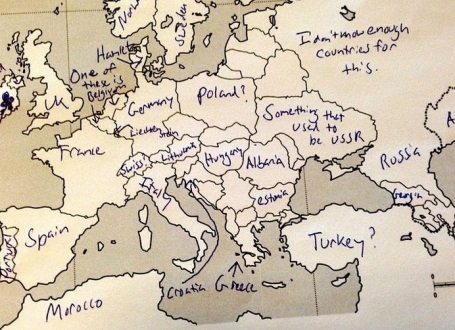 Norw
Sweden
Hamlet
One of
these is
Belgium
I don't know enough
countries for
this.
UK
Germany
Poland?
Something that
used to
be USSR
Liechtenstein
France
Swiss
Lithuania
Hungary
Albania
Russia
A
Italy
Estonia
Georgia
Spain
Turkey?
Croatia
Greece
Morocco